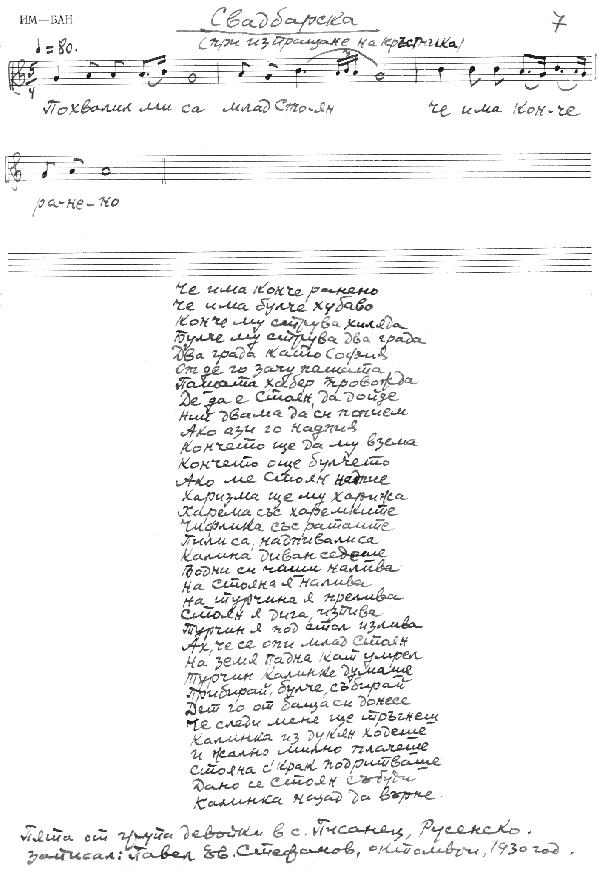 ИМ—БАН
Свадбарска
7
(при изпращане на кръстника)
♩=80.
5
4
Похвалил ми са млад Сто-ян че има кон-че
ра-не-но
Че има конче ранено
Че има булче хубаво
Конче му струва хиляда
Булче му струва два града
Два града като София
От де го зачу пашата
Пашата хабер провожда
Де да е Стоян, да дойде
Ний двама да си попием
Ако ази го надпия
Кончето ще да му взема
Кончето още булчето
Ако ме Стоян надпие
Харизма ще му харижа
Харема със харемките
Чифлика със ратаите
Пили са, надпивали са
Калина диван седеше
Водни си чаши налива
На Стояна я налива
На турчина я прелива
Стоян я дига, изпива
Турчин я под стол излива
Ах, че се опи млад Стоян
На земя падна кат умрел
Турчин Калинке думаше
Прибирай, булче, събирай
Дет го от баща си донесе
Че следи мене ще тръгнеш
Калинка из дукян ходеше
И жално милно плачеше
Стояна с крак подритваше
Дано се Стоян събуди
Калинка назад да върне.
Пята от група девойки в с. Писанец, Русенско.
записал: Павел Ев. Стефанов, октомври, 1930 год.